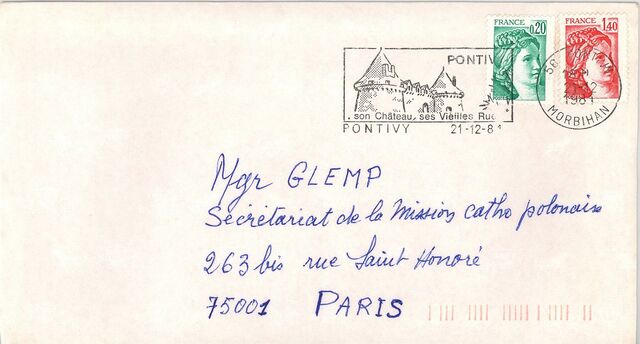 FRANCE 0,20
FRANCE 1,40
POSTES
PONTIVY
son Château, ses Vieilles Rues
PONTIVY 21-12-81
56 PONTIVY
21-12
1981
MORBIHAN
Mgr GLEMP
Secrétariat de la Mission catho polonaise
263 bis rue Saint Honoré
75001 PARIS